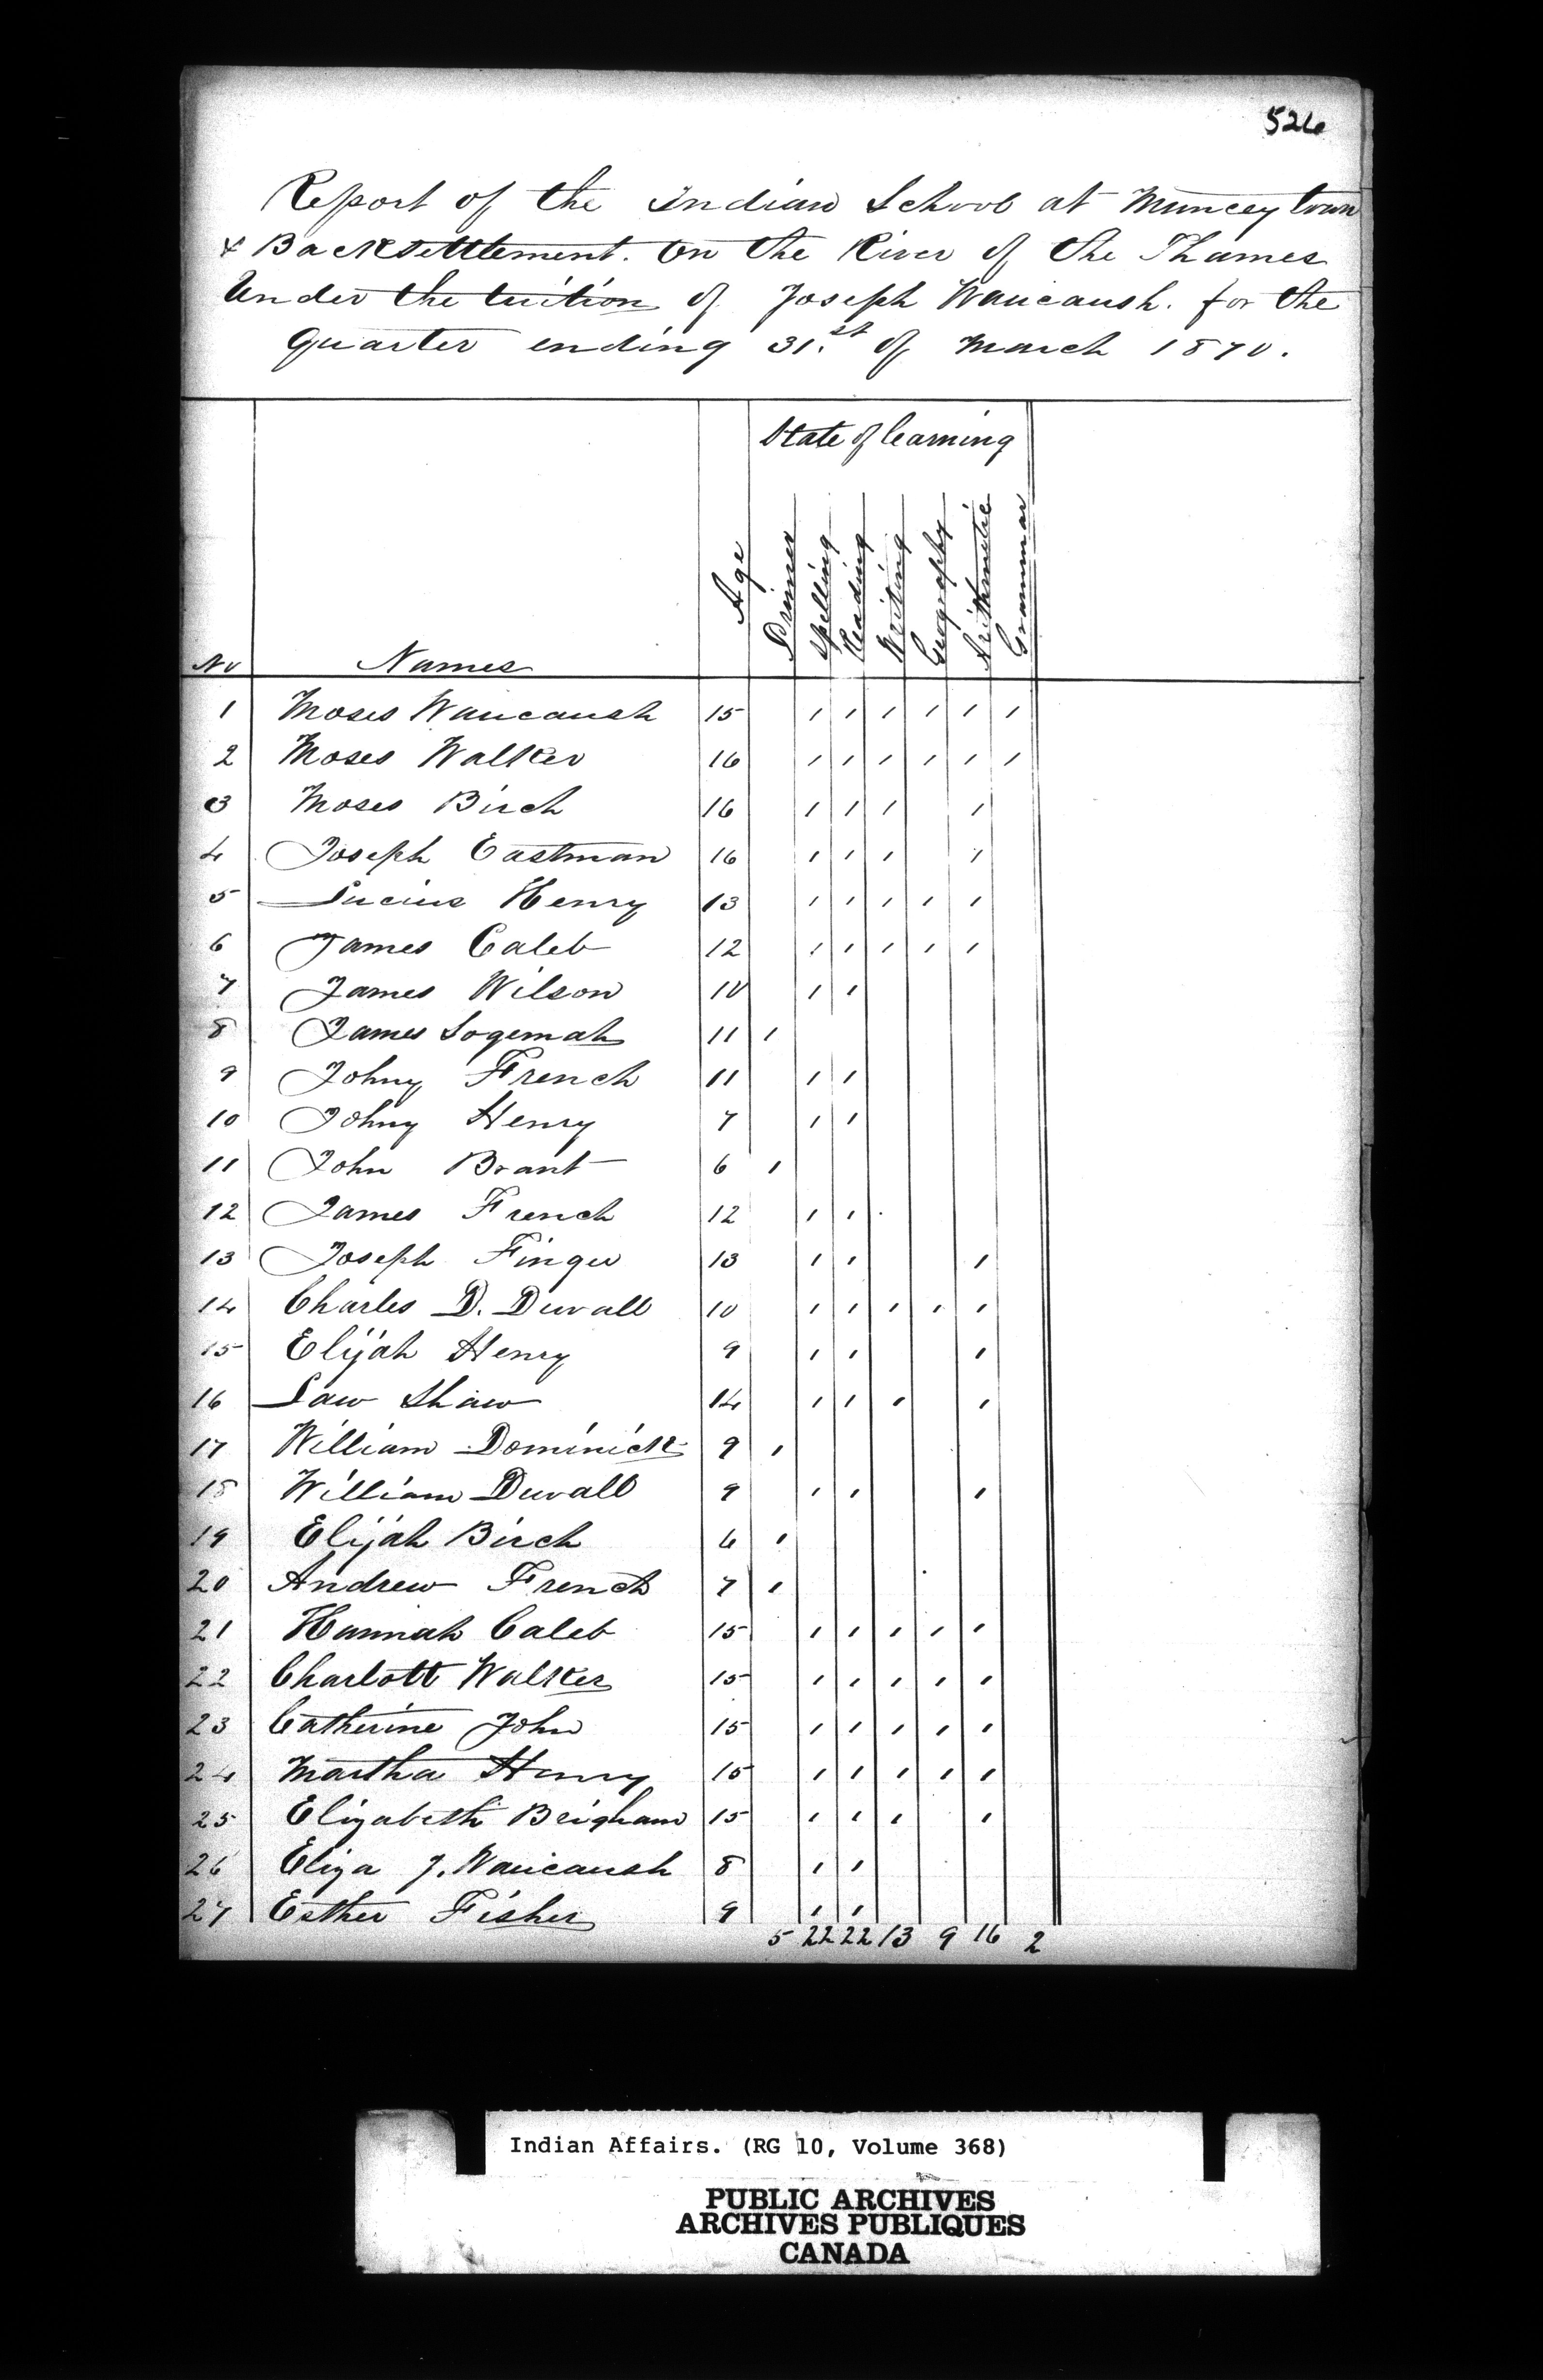 526
Report of the Indian School at Munceytown
& Backsettlement. on the River of the Thames
Under the tuition of Joseph Waucaush. for the
Quarter ending 31.st of March 1870.
State of learning
No Names Age Primer Spelling Reading Writing Geography Arithmetic Grammar
1 Moses Waucaush 15 / / / / / /
2 Moses Walker 16 / / / / / /
3 Moses Birch 16 / / / /
4 Joseph Eastman 16 / / / /
5 Lucius Henry 13 / / / / /
6 James Caleb 12 / / / / /
7 James Wilson 10 / /
8 James Logemah 11 /
9 Johny French 11 / /
10 Johny Henry 7 / /
11 John Brant 6 /
12 James French 12 / /
13 Joseph Finger 13 / / /
14 Charles D. Duvall 10 / / / / /
15 Elijah Henry 9 / / /
16 Law Shaw 14 / / / /
17 William Dominick 9 /
18 William Duvall 9 / / /
19 Elijah Birch 6 /
20 Andrew French 7 /
21 Hannah Caleb 15 / / / / /
22 Charlott Walker 15 / / / / /
23 Catherine John 15 / / / / /
24 Martha Henry 15 / / / / /
25 Elizabeth Brigham 15 / / / /
26 Eliza J. Waucaush 8 / /
27 Esther Fisher 9 / /
5 22 22 13 9 16 2
Indian Affairs. (RG 10, Volume 368)
PUBLIC ARCHIVES
ARCHIVES PUBLIQUES
CANADA